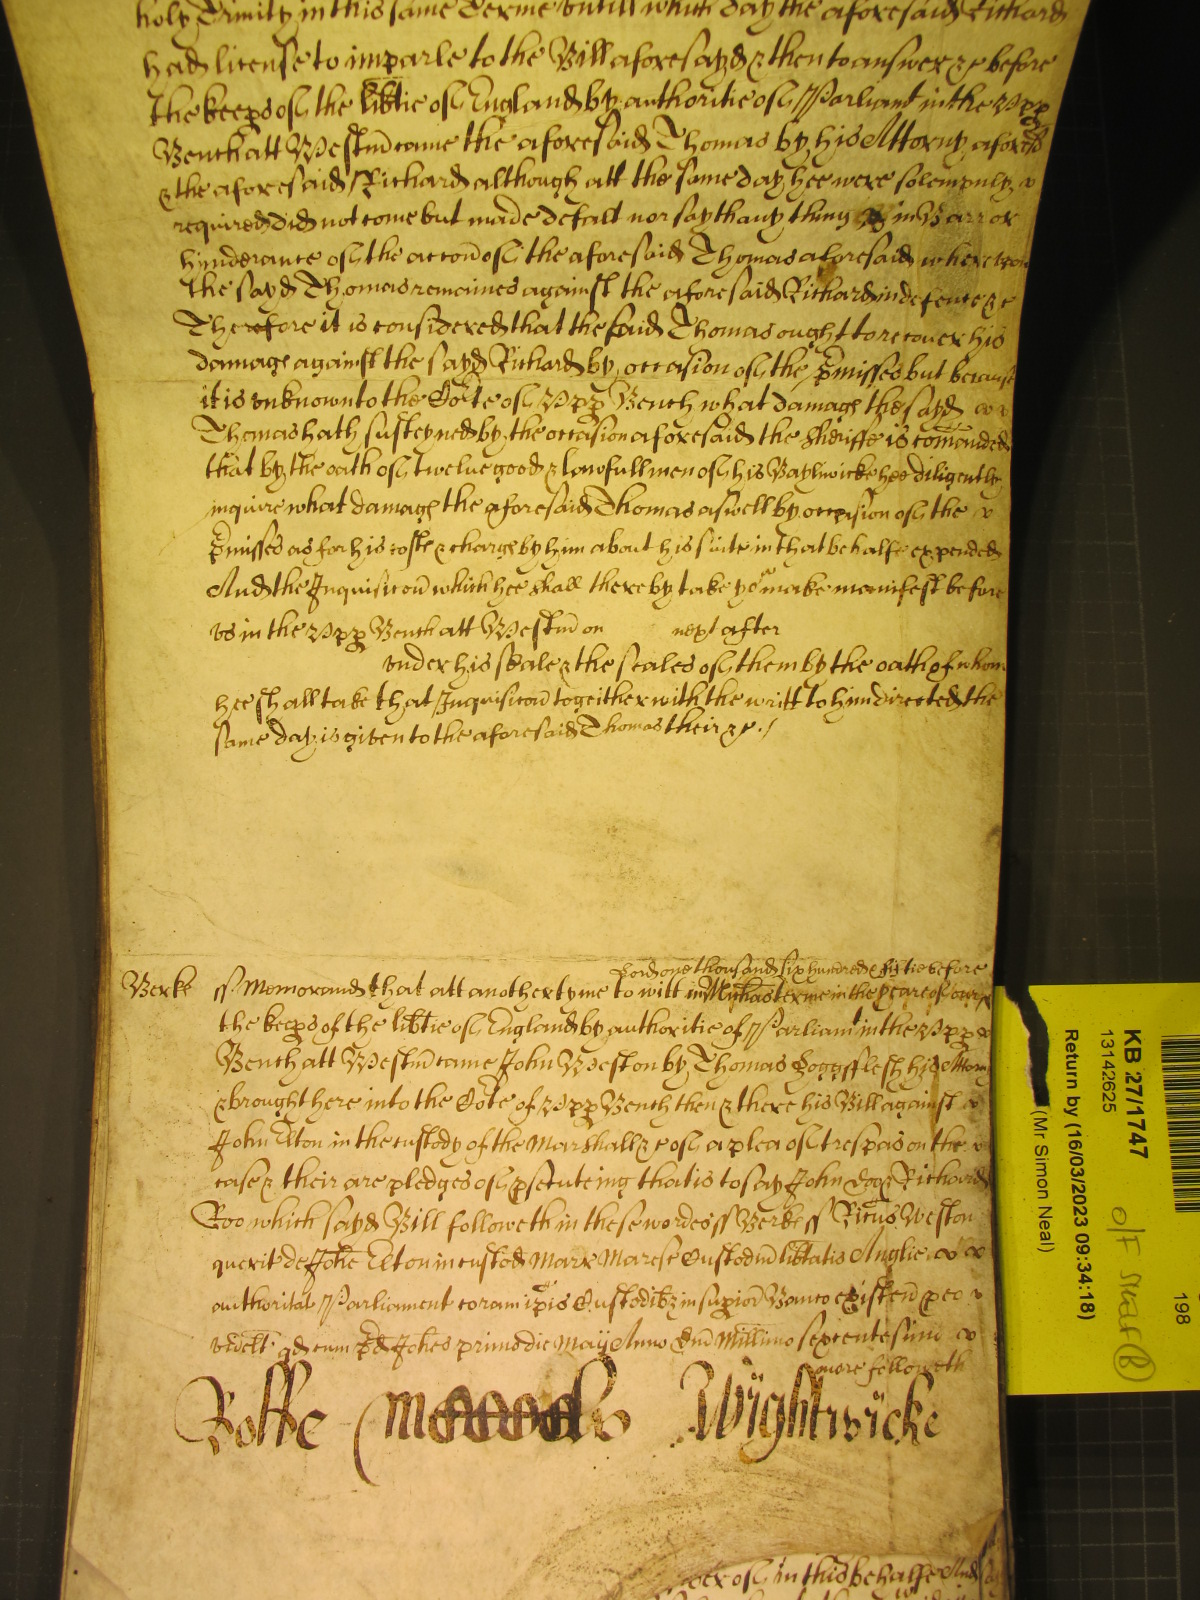 holy Trinity in this same Terme untill which day the aforesaid Richard
had license to imparle to the Bill aforesayd & then to answer &c before
the keeps of the libtie of England by authoritie of Parliamt in the Upp
Bench att Westm̄ came the aforesaid Thomas by his Attorny aforesd
& the aforesaid Richard although att the same day hee were solempnly
required did not come but made defalt nor sayth any thing in barr or
hinderance of the accōn of the aforesaid Thomas aforesaid whereupon
the sayd Thomas remaines against the aforesaid Richard in defence &c
Therefore it is considered that the said Thomas ought to recover his
damage against the sayd Richard by occasion of the p̄misses but because
it is unknown to the Cōrte of Upp Bench what damage the sayd
Thomas hath susteyned by the occasion aforesaid the Sheriffe is com̄anded
that by the oath of twelve good & lawfull men of his Baylywicke hee diligently
inquire what damage the aforesaid Thomas aswell by occasion of the
p̄misses as for his coste & charge by him about his suite in that behalfe expended
And the Inquisicōn which hee shall thereby take make manifest before
us in the Upp Bench att Westm̄ on next after
under his seale & the seales of them by the oath of whom
hee shall take that Inquisicōn togeither with the writt to him directed the
same day is given to the aforesaid Thomas their &c./
Lord one thousand six hundred fiftie before
Berke ss Memorand that att another tyme to witt in Michās terme in the yeare of our
the keeps of the libtie of England by authoritie of Parliamt in the Upp
Bench att Westm̄ came John Weston by Thomas Hoggflesh his Attorn
& brought here into the Cōte of Upp Bench then & there his Bill against
John Elton in the custody of the Marshall &c of a plea of trespas on the
case & their are pledges of psecuteing that is to say John Doo & Richard
Roo which sayd Bill followeth in these wordes ss Berke ss Ricūs Weston
querit de Johē Elton in custod Marr Marese Custodū libtatis Anglie
authoritat Parliament coram ip̄is Custodibz in supiori Banco existen̄ p eo
videlt qd cum p̄d Johēs primo die Maij Anno Dn̄i Millimo sexcentesimo
more followeth
Rolfe Wightwicke
of in this behalfe And
KB 27/1747
13142625
Return by (16/03/2023 09:34:18)
(Mr Simon Neal)
198